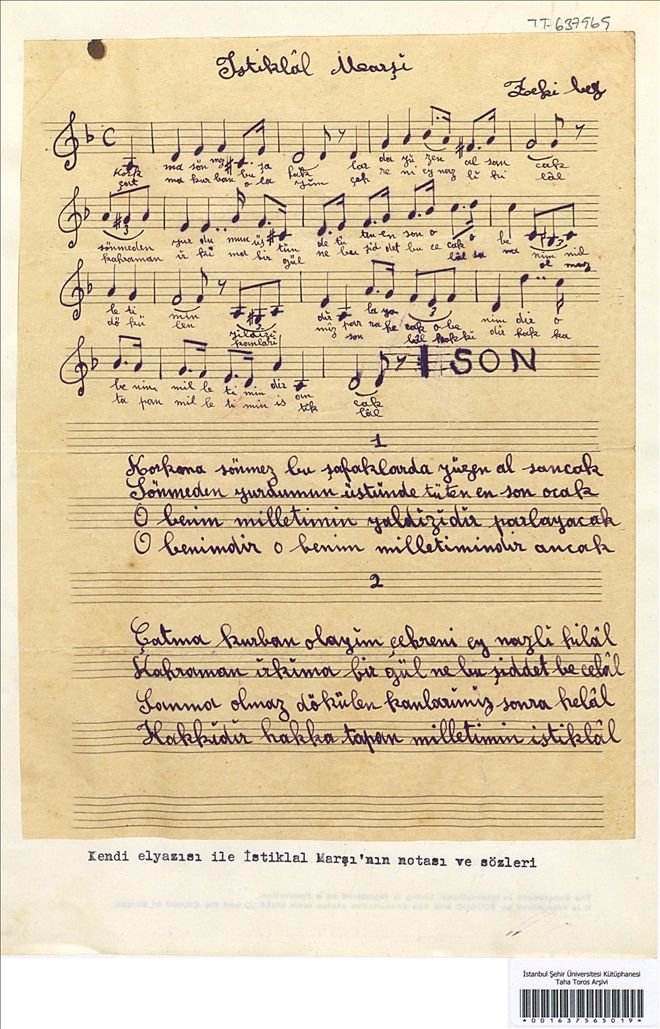 TT-637965
İstiklâl Marşi
Zeki bey
Kork ma sön mez bu şa fak lar da yü zen al san cak
ma kur ban o la yim çeh re ni ey naz li hi lâl
sönmeden yur du mun üs tün de tü ten en son o cak o be nim mil
kahraman ir ki ma bir gül ne bu şid det bu ce lâl sa na ol maz
le ti min yildizi dir par la ya cak o be nim dir o
dö kü len kanlari miz son ra he lâl hakki dir hak ka
be nim mil le ti min dir an cak
ta pan mil le ti min is tik lâl
SON
1
Korkma sönmez bu şafaklarda yüzen al sancak
Sönmeden yurdumun üstünde tüten en son ocak
O benim milletimin yaldizidir parlayacak
O benimdir o benim milletimindir ancak
2
Çatma kurban olayim çehreni ey nazli hilâl
Kahraman irkima bir gül ne bu şiddet be celâl
Sonma olmaz dökülen kanlarimiz sonra helâl
Hakkidir hakka tapan milletimin istiklâl
Kendi elyazısı ile İstiklal Marşı'nın notası ve sözleri
İstanbul Şehir Üniversitesi Kütüphanesi
Taha Toros Arşivi
*001637565019*